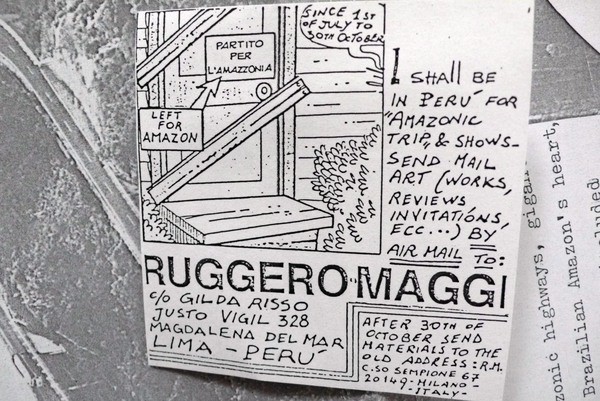 SINCE 1ST
OF JULY TO
30TH OCTOBER
PARTITO
PER
L'AMAZZONIA
LEFT
FOR
AMAZON
I SHALL BE
IN PERÚ FOR
"AMAZONIC
TRIP" & SHOWS-
SEND MAIL
ART (WORKS,
REVIEWS
INVITATIONS
ECC...) BY
AIR MAIL TO:
RUGGERO MAGGI
C/O GILDA RISSO
JUSTO VIGIL 328
MAGDALENA DEL MAR
LIMA - PERÚ
AFTER 30TH OF
OCTOBER SEND
MATERIALS TO THE
OLD ADDRESS: R.M.
C.SO SEMPIONE 67
20149-MILANO-
-ITALY-
zonic highways, gigan
Brazilian Amazon's heart,
cluded